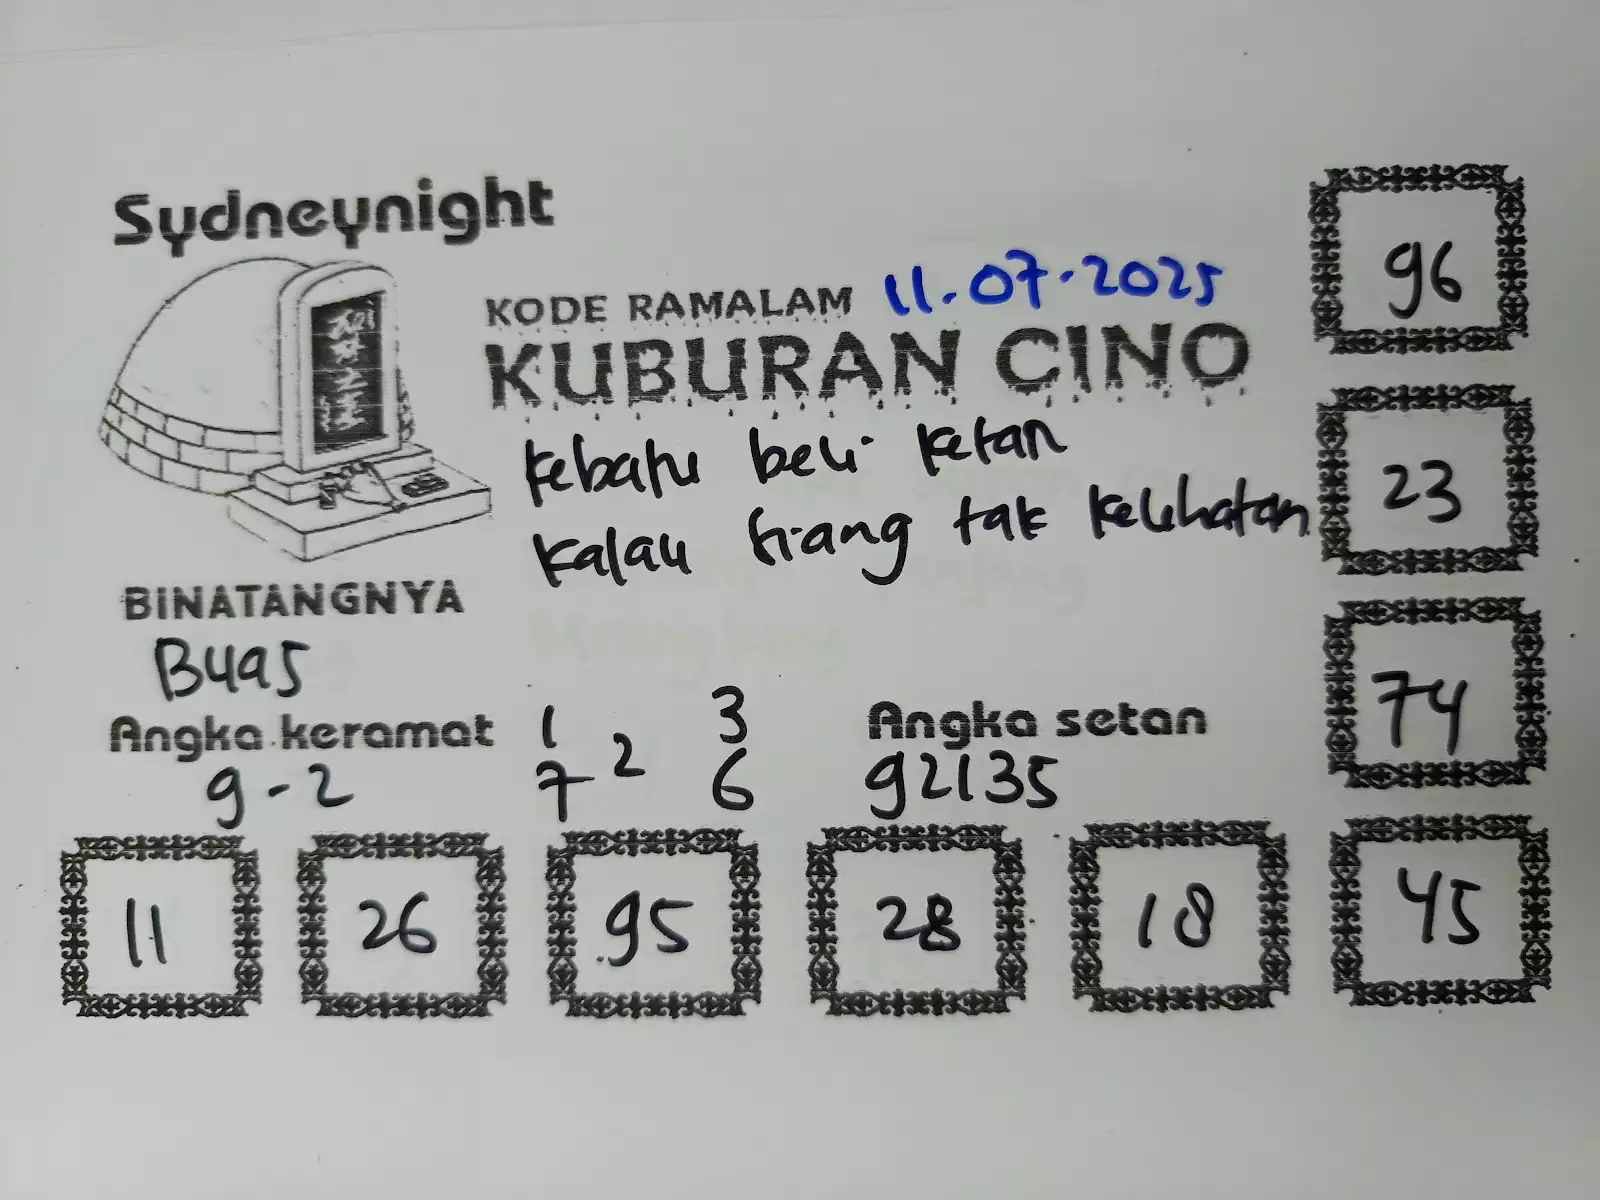 Sydneynight
KODE RAMALAM 11.07.2025
KUBURAN CINO
Kebatu beli ketan
Kalau siang tak kelihatan
BINATANGNYA
Buas
Angka keramat
9-2
1 3
2
7 6
Angka setan
92135
96
23
74
45
11 26 95 28 18